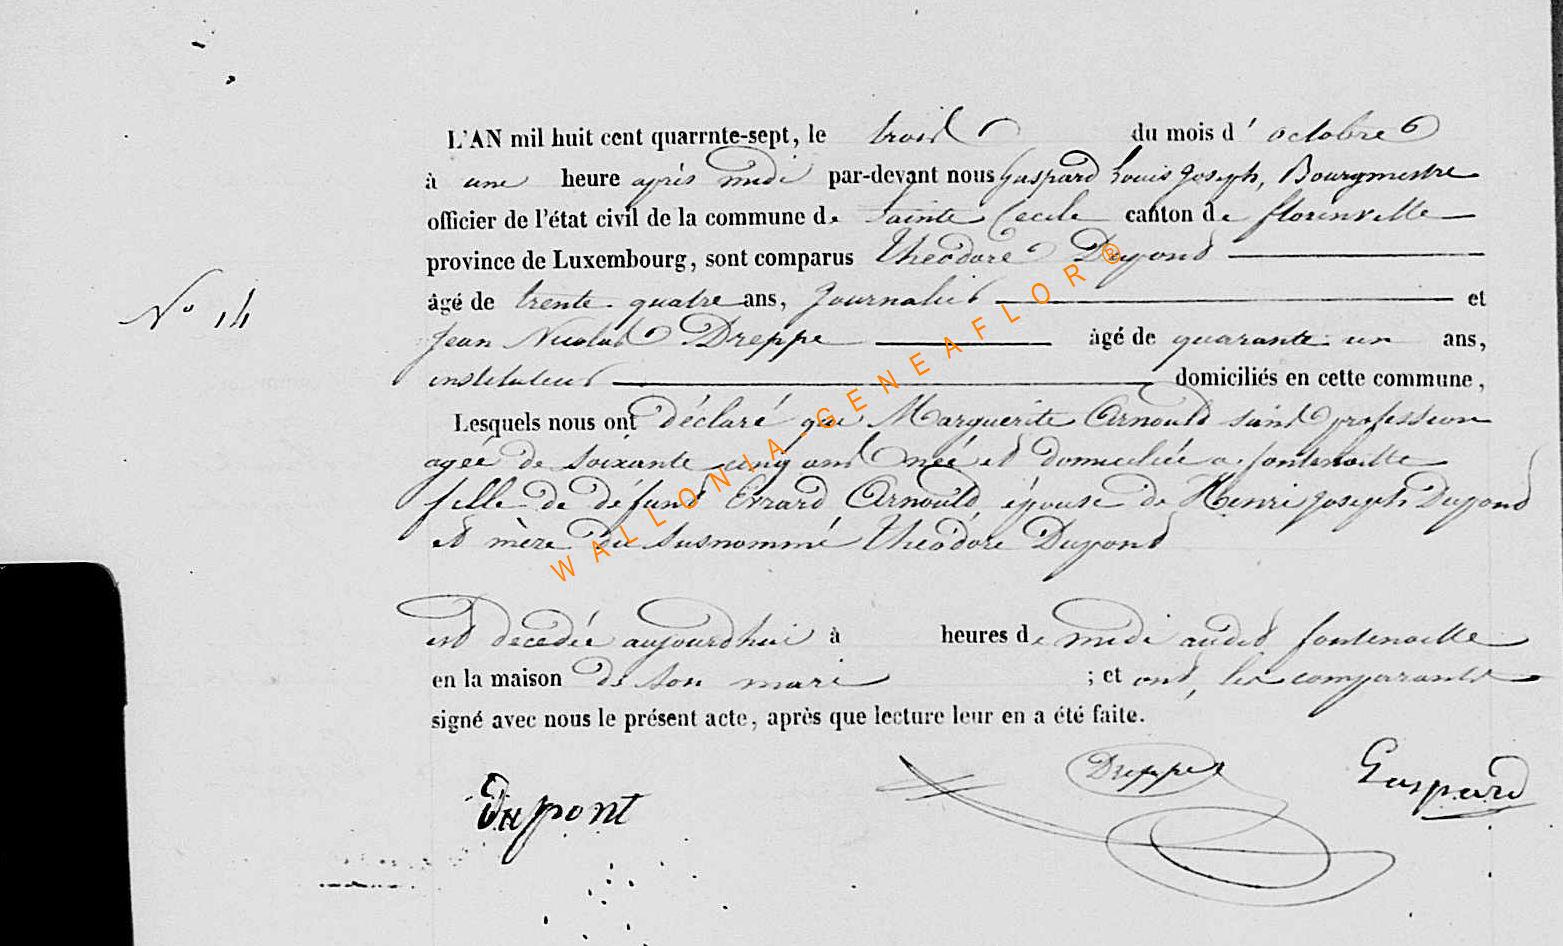 L'AN mil huit cent quarrnte-sept, le trois du mois d' octobre
à une heure après midi par-devant nous Gaspard Louis Joseph, Bourgmestre
officier de l'état civil de la commune de Sainte Cecile canton de florenville
province de Luxembourg, sont comparus Théodore Dupond
âgé de trente quatre ans, Journalier et
Jean Nicolas Dreppe àgé de quarante un ans,
instituteur domiciliés en cette commune,
N° 14
Lesquels nous ont déclaré que Marguerite Arnould sans profession
agée de soixante cinq ans née et domiciliée a fontenoille
fille de défunt Evrard Arnould épouse de Henri Joseph Dupond
et mère du susnommé Théodore Dupond
est decedée aujourdhui à heures de midi audit fontenoille
en la maison de son mari ; et ont, les comparants
signé avec nous le présent acte, après que lecture leur en a été faite.
Dupont
Dreppe
Gaspard
WALLONIA-GENEAFLOR®